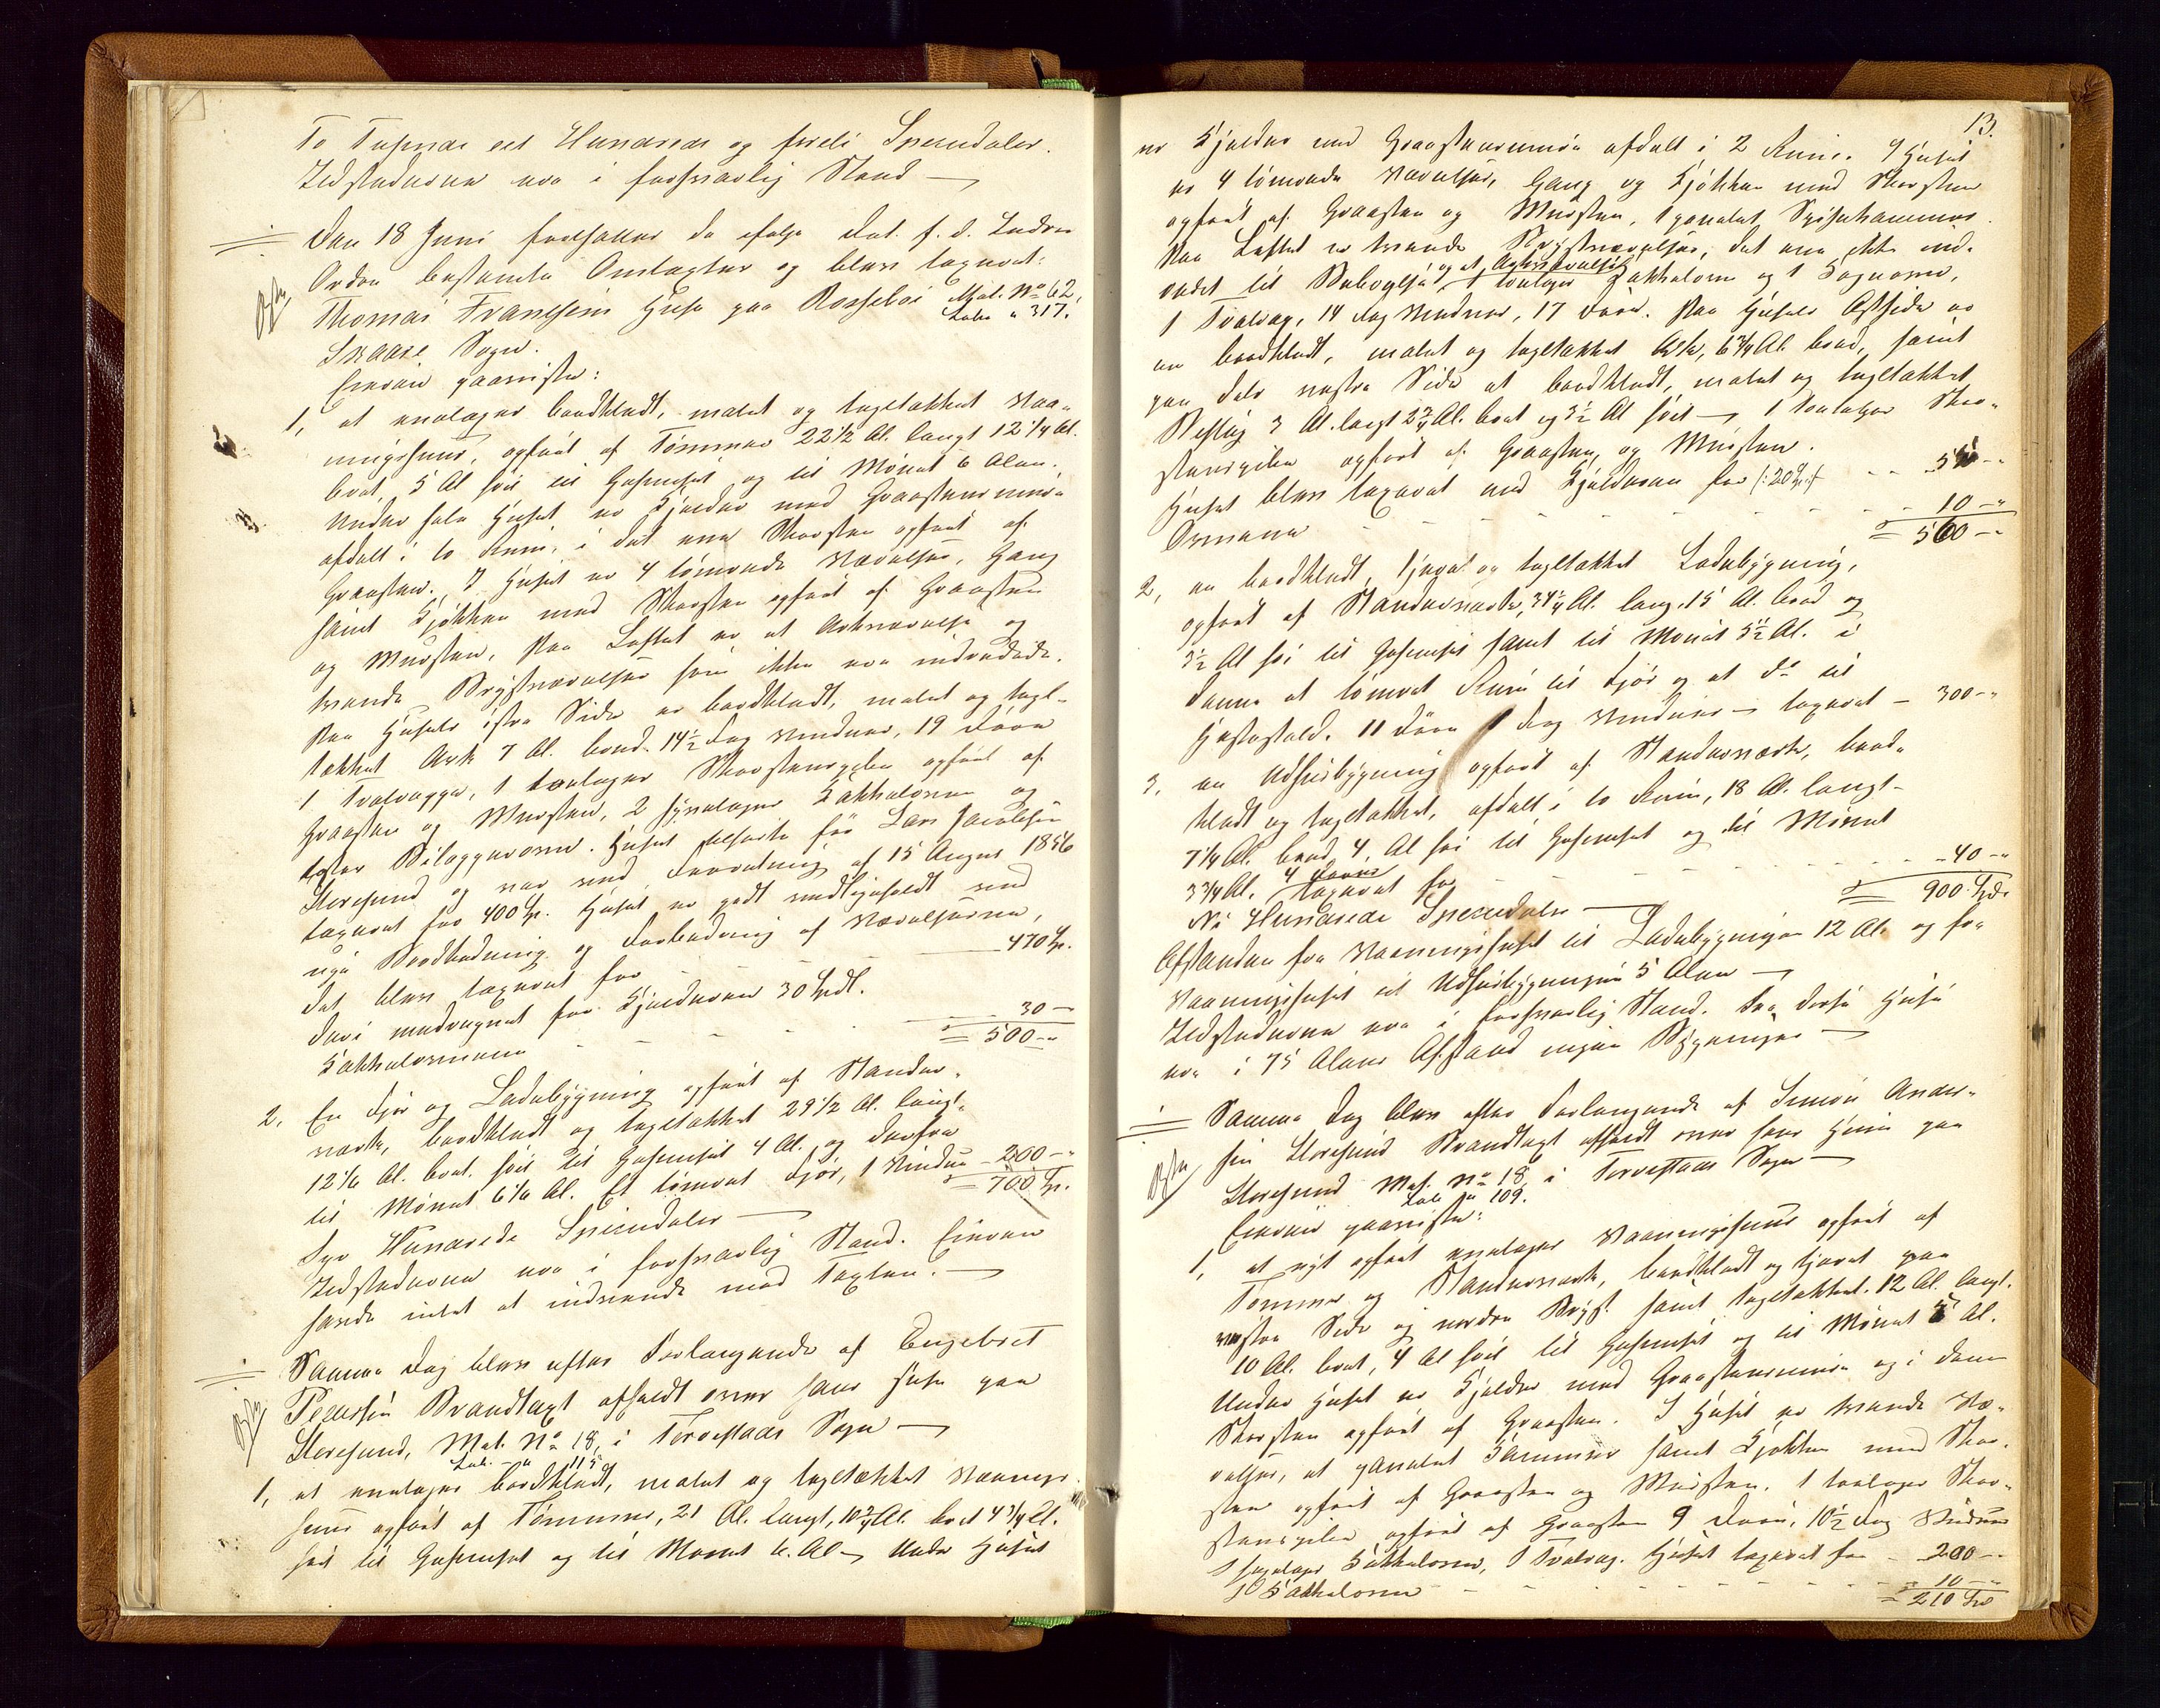 To Tusinde et Hundrede og firti Speciedaler.
Ildstederne ere i forsvarlig Stand —
Den 18 Juni foretoges de ifølge Dat. f. d. Lendsm
Orden bestemte Omtaxter og blev taxeret:
Thomas Frantsens Huse paa Rossebø Mat. No 62,
Løbe " 317.
Skaare Sogn.
Enevai paavistes:
1, et enetages bordklædt, malet og tagltækket Vaa-
ningshuus, opført af Tømmer 22 1/2 Al. langt 12 1/4 Al.
bred, 5 Al høi til Gesimset og til Mønet 6 Alen.
Under hele Huset er Kjælder med Graasteensmure
afdelt i to Rum, i det ene Skorsten opført af
Graasten. I Huset er 4 tømrede Værelser, Gang
samt Kjøkken med Skorsten opført af Graasten
og Mursten, Paa Loftet er et Arkværelse og
tvende Brystværelser som ikke ere indredede.
Paa Husets østre Side er bordklædt, malet og tagl-
tækket Ark 7 Al. bred. 14 1/2 Fag Vinduer, 19 Døre
1 Tralvægge, 1 toetages Skorstenspibe opført af
Graasten og Mursten, 2 Kakkelovne og
Bilæggerovne. Huset tilhørte før Lars Jacobsen
Storesund og var ved Forretning af 15 August 1856
taxeret for 400 Sp. Huset er godt vedligeholdt med
nye Bordklædning og Forbedring af Værelserne,
det blev taxeret for - - - 470 Sp.
deri medregnet for Kjælderen 30 Spdl.
Kakkelovnene - - - 30 —
= 500 - "
2. En Fjøs og Ladebygning opført af Stander-
værk, bordklædt og tagltækket 29 1/2 Al. langt,
12 1/6 Al. bred. høi til Gesimset 4 Al. og derfra
til Mønet 6 1/6 Al. Et tømret Fjøs, 1 Vindue - 200 - "
= 700 Sp.
Syv Hundrede Speciedaler —
Ildstederne ere i forsvarlig Stand. Eieren
havde intet at indvende mod Taxten. —
Samme Dag blev efter Forlangende af Engebret
Pedersen Brandtaxt afholdt over hans Huse paa
Storesund, Mat. No 18, i Torvestads Sogn —
Løb. - " 115
1, et enetages bordklædt, malet og tagltækket Vaanings-
huus opført af Tømmer, 21 Al. langt, 10 3/4 Al. bred 4 3/4 Al.
høi til Gesimset og til Mønet 6 Al — Under Huset
13.
er Kjælder med Graasteensmure afdelt i 2 Rum. I Huset
er 4 tømrede Værelser, Gang og Kjøkken med Skorsten
opført af Graasten og Mursten, 1 panelet Spisekammer.
Paa Loftet er tvende Brystværelser, det ene ikke ind-
redet til Beboelse og et Arkværelse, 1 toetages Kakkelovn og 1 Kogeovn,
1 Tralvæg, 14 Fag Vinduer, 17 Døre. Paa Husets Østside er
en bordklædt, malet og tagltækket Ark, 6 3/4 Al. bred, samt
paa dets vestre Side et bordklædt, malet og tagltækket
Beslag 3 Al. langt 2 3/4 Al. bred og 3 1/2 Al høit — 1 toetages Skor-
stenspibe opført af Graasten og Mursten.
Huset blev taxeret med Kjælderen for (: 20 Sp :) - - 550 - "
Ovnene - - - 10 - "
= 560 - "
2, en bordklædt, tjæret og tagltækket Ladebygning,
opført af Standerværk, 34 1/4 Al. lang, 15 Al. bred og
3 1/2 Al høi til Gesimset samt til Mønet 5 1/2 Al. i
denne et tømret Rum til Fjøs og et do til
Hestestald. 11 Døre 1 Fag Vinduer — taxeret - 300 - "
3. en Udhuusbygning opført af Standerværk, bord-
klædt og tagltækket, afdelt i to Rum, 18 Al. langt -
7 1/4 Al. bred, 4 Al høi til Gesimset og til Mønet
3 3/4 Al. 4 Døre taxeret for - - - 40 - "
= 900 Spd.
Ni Hundrede Speciedaler —
Afstanden fra Vaaningshuset til Ladebygningen 12 Al. og fra
Vaaningshuset til Udhuusbygningen 5 Alen —
Ildstederne ere i forsvarlig Stand. Fra disse Huse
ere i 75 Alens Afstand ingen Bygninger —
Samme Dag blev efter Forlangende af Simon Ander-
sen Storesund Brandtaxt afholdt over hans Huse paa
Storesund Mat. No 18, i Torvestads Sogn —
Løb. No 109.
Enevai paavistes:
1, et nyt opført enetages Vaaningshuus opført af
Tømmer og Standerværk, bordklædt og tjæret paa
vestre Side og nordre Bryst samt tagltækket. 12 Al. langt.
10 Al. bred, 4 Al høi til Gesimset og til Mønet 5 Al.
Under Huset er Kjælder med Graasteensmure og i denne
Skorsten opført af Graasten. I Huset er tvende Væ-
relser, et panelet Kammer samt Kjøkken med Skor-
sten opført af Graasten og Mursten. 1 toetages Skor-
stenspibe opført af Graasten 9 Døre, 10 1/2 Fag Vinduer
1 Kakkelovn, 1 Tralvæg. Huset taxeret for - 200 - "
Kakkelovn - - - 10 - "
= 210 Spd